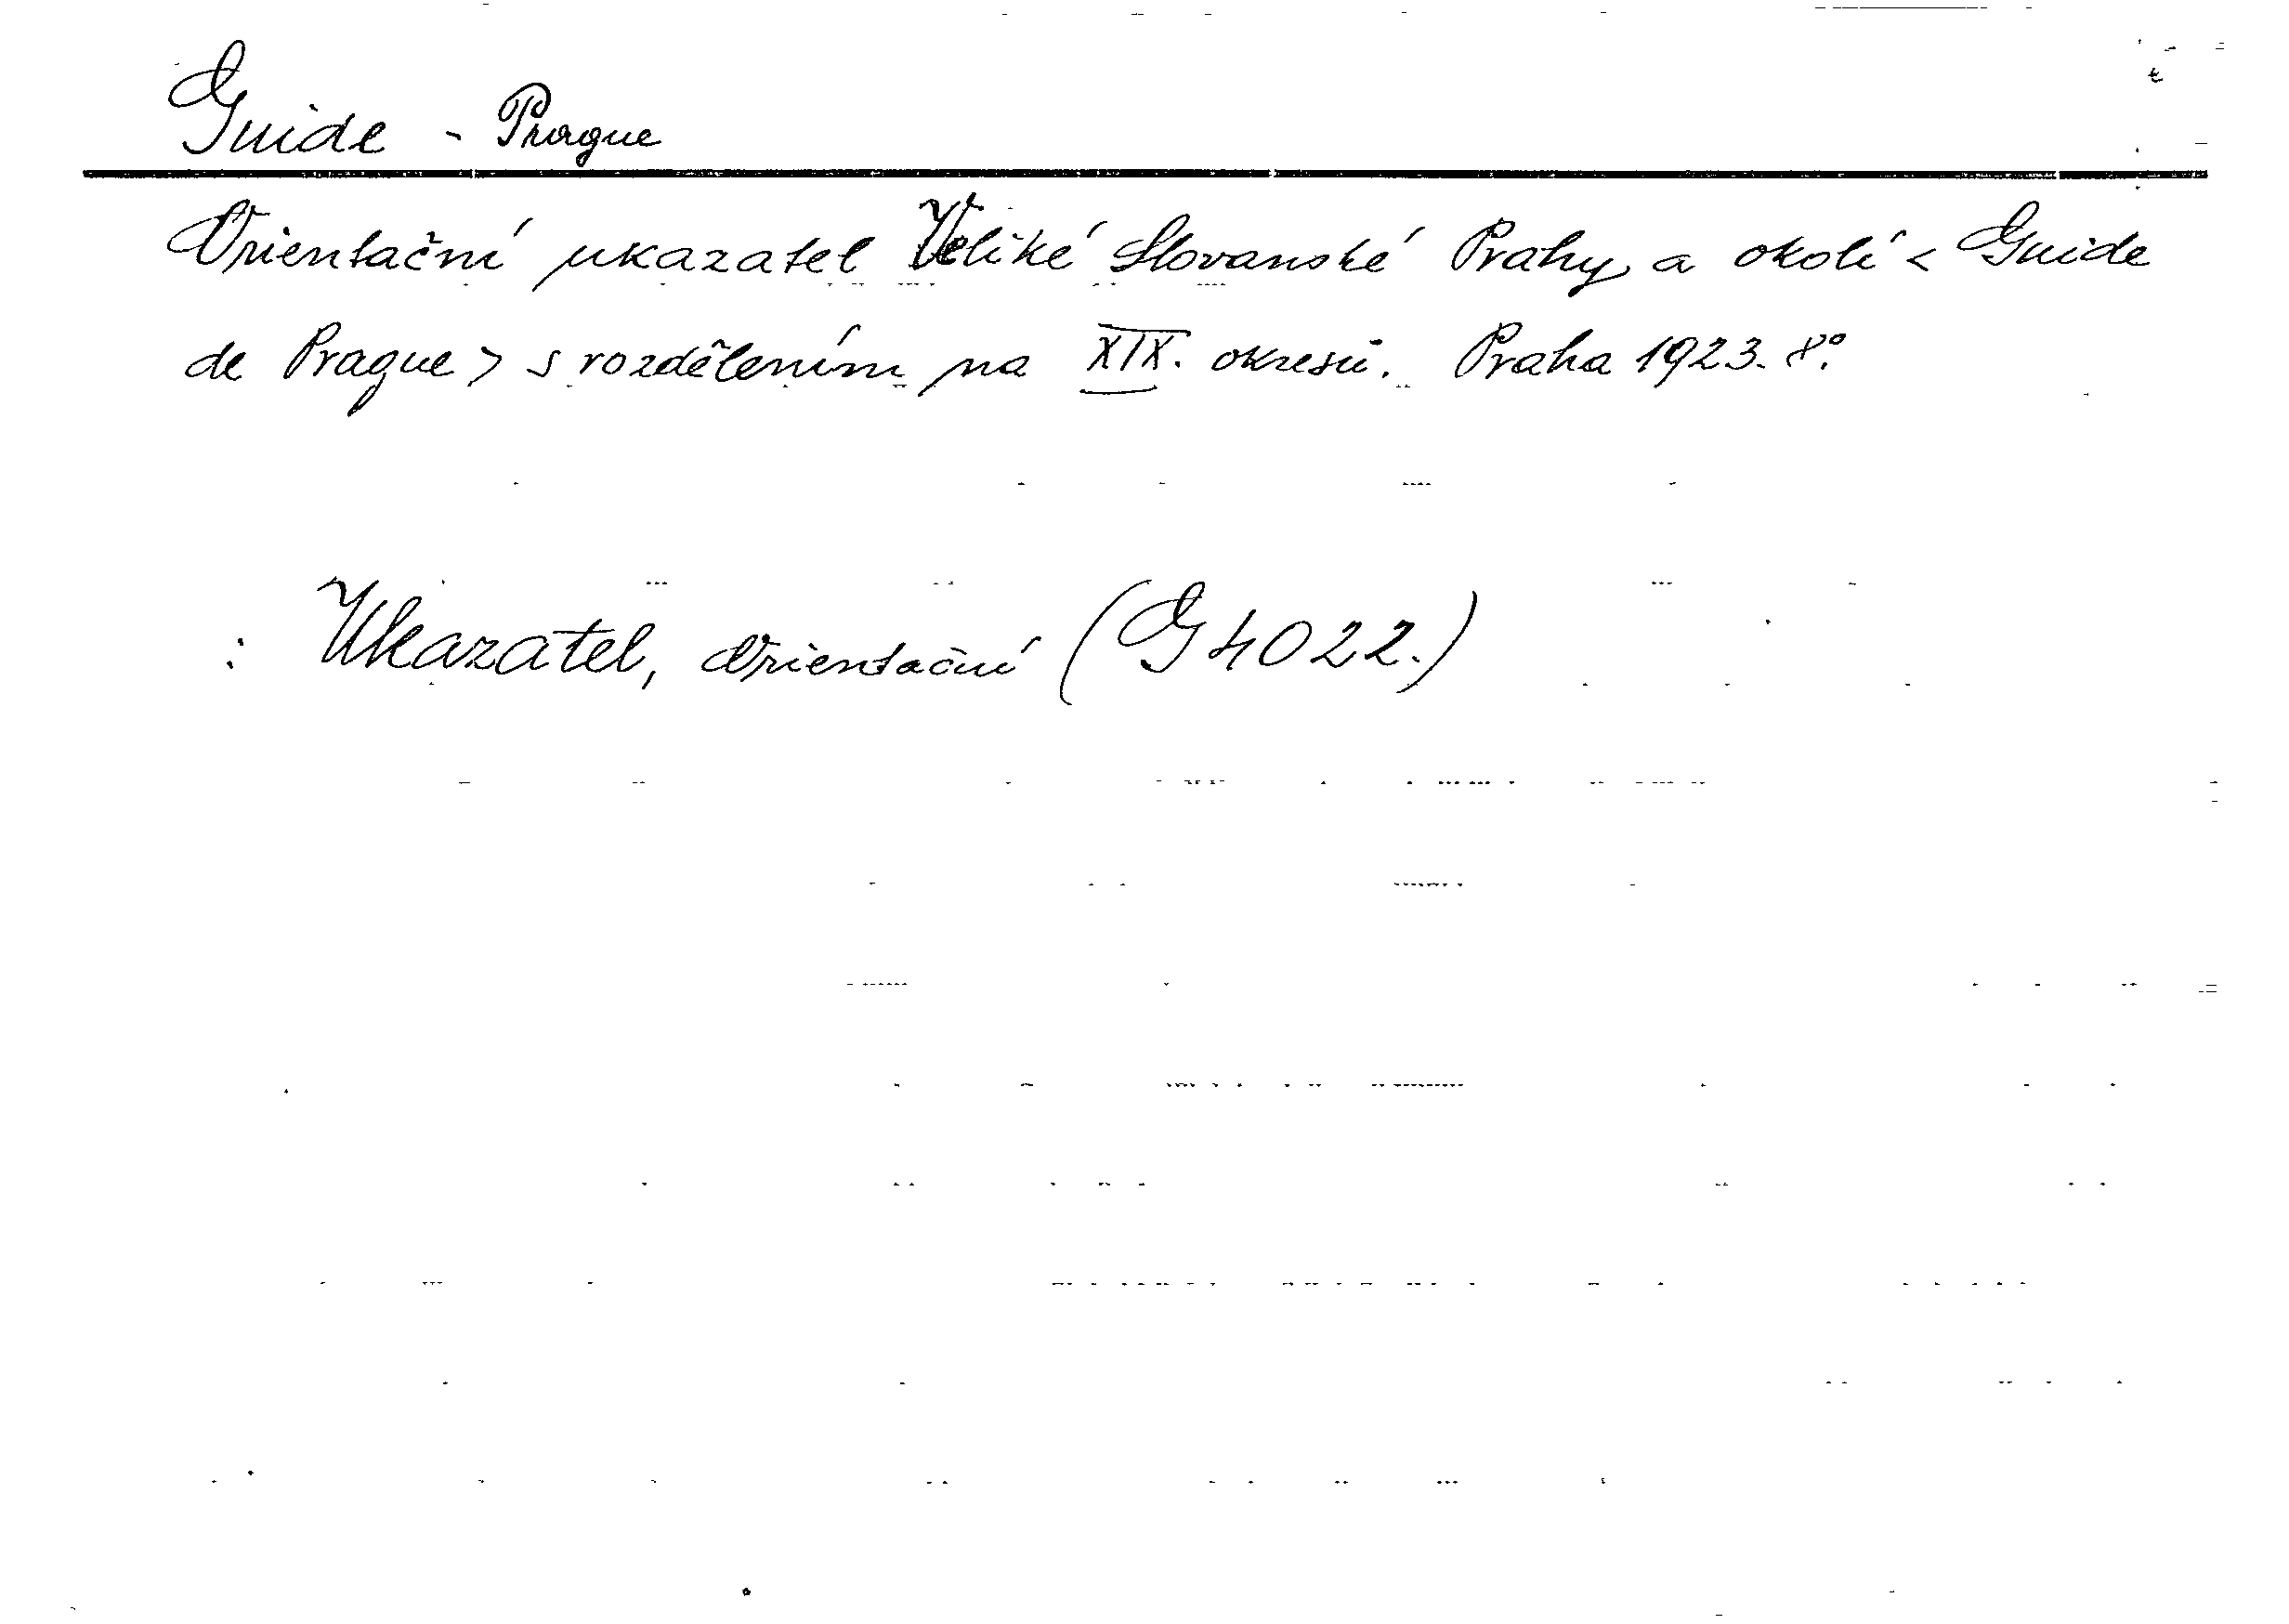 Guide - Prague
Orientační ukazatel Veliké Slovanské Prahy a okolí < Guide
de Prague > s rozdělením na XIX. okresů. Praha 1923. 8°.
: Ukazatel, Orientační (G 4022.)